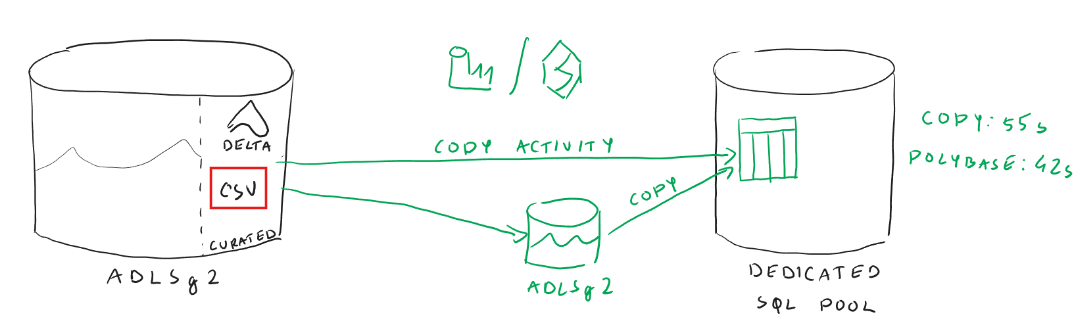 DELTA
CSV
CURATED
ADLSg2
COPY ACTIVITY
COPY
ADLSg2
DEDICATED
SQL POOL
COPY: 55s
POLYBASE: 42s